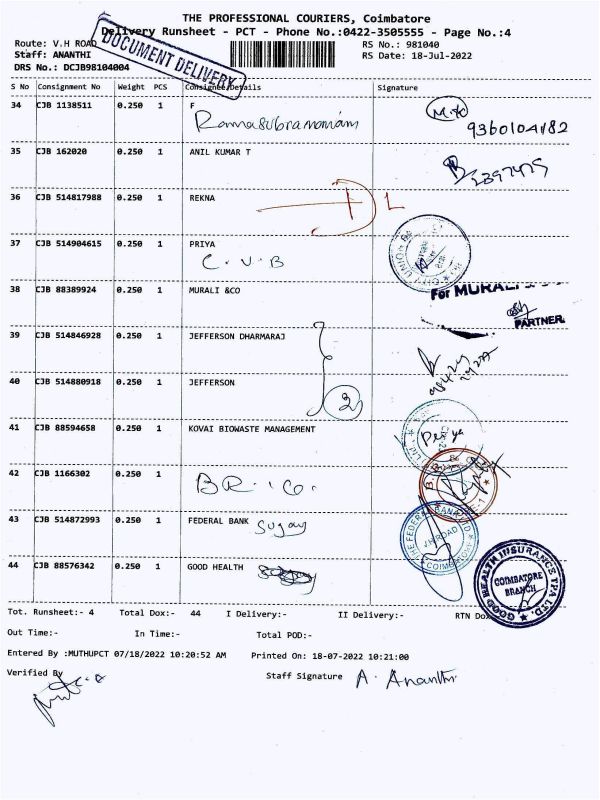 THE PROFESSIONAL COURIERS, Coimbatore
Delivery Runsheet - PCT - Phone No.:0422-3505555 - Page No.:4
Route: V.H ROAD
RS No.: 981040
Staff: ANANTHI
RS Date: 18-Jul-2022
DRS No.: DCJB98104004
DOCUMENT DELIVERY
S No Consignment No Weight PCS Consignee/Details Signature
34 CJB 1138511 0.250 1 F
Ramasubramaniam
35 CJB 162020 0.250 1 ANIL KUMAR T
36 CJB 514817988 0.250 1 REKNA
DL
37 CJB 514904615 0.250 1 PRIYA
C.V.B
CITY UNION BA
38 CJB 88389924 0.250 1 MURALI &CO
For MURALI
PARTNER.
39 CJB 514846928 0.250 1 JEFFERSON DHARMARAJ
40 CJB 514880918 0.250 1 JEFFERSON
2
41 CJB 88594658 0.250 1 KOVAI BIOWASTE MANAGEMENT
Priya
42 CJB 1166302 0.250 1
BR.Co.
43 CJB 514872993 0.250 1 FEDERAL BANK
THE FEDERAL BANK LTD
COIMBATORE
44 CJB 88576342 0.250 1 GOOD HEALTH
GOOD HEALTH INSURANCE TPA LTD.
COIMBATORE
BRANCH
Tot. Runsheet:- 4 Total Dox:- 44 I Delivery:- II Delivery:- RTN Dox
Out Time:- In Time:- Total POD:-
Entered By :MUTHUPCT 07/18/2022 10:20:52 AM Printed On: 18-07-2022 10:21:00
Verified By
Staff Signature A. Ananthi